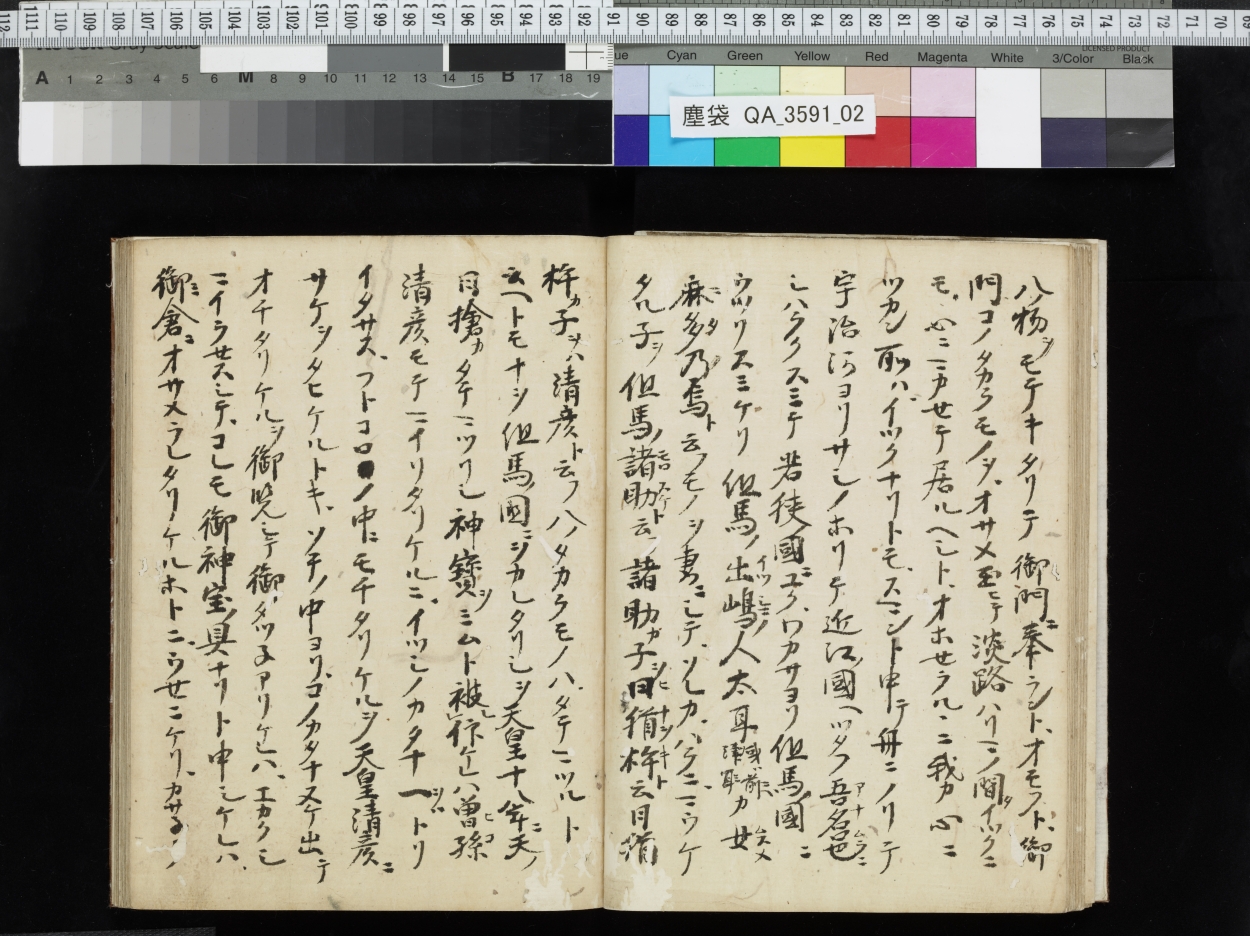 112 111 110 109 108 107 106 105 104 103 102 101 100 99 98 97 96 95 94 93 92 91 90 89 88 87 86 85 84 83 82 81 80 79 78 77 76 75 74 73 72 71 70 69
A 1 2 3 4 5 6 M 8 9 10 11 12 13 14 15 B 17 18 19
Cyan Green Yellow Red Magenta White 3/Color Black
LICENSED PRODUCT
塵袋 QA_3591_02
八物ヲモテキタリテ御門ニ奉ラントオモフト、御
門コノタカラモノヲオサメ玉ヒテ淡路ハリマノ間イツクニ
モ、心ニマカセテ居ルヘシト、オホセラルニ我カ心ニ
ツカン所ハイツクナリトモスマント申テ舟ニノリテ
宇治河ヨリサシノホリテ近江國ヘツタフ吾名邑ニ
シハラクスミテ若狭國ニユク、ワカサヨリ但馬國ニ
ウツリスミケリ但馬ノ出嶋人太耳カ女
麻多乃烏ト云フモノヲ妻ニシテ、ソレカハラニマウケ
タル子ヲ但馬諸助ト云フ諸助カ子日楢杵ト云日楢
杵カ子ヲハ清彦ト云フ八ノタカラモノハ、タテマツルト
云ヘトモナヲ但馬國ニヲカレタリシヲ天皇十八年ニ天ノ
日槍カタテマツリシ神寶ヲミムト被仰ケレハ曽孫
清彦モテマイリタリケルニ、イツシノカタナ一ヲトリ
イタサス、フトコロノ中ニモチタリケルヲ天皇清彦ニ
サケヲタヒケルトキ、ソテノ中ヨリ、コノカタナヌケ出テ
オチタリケルヲ御覧シテ御タツネアリケレハ、エカクシ
マイラセスシテ、コレモ御神宝ノ具ナリト申シケレハ、
御倉ニオサメラレタリケルホトニ、ウセニケリ、カサネ